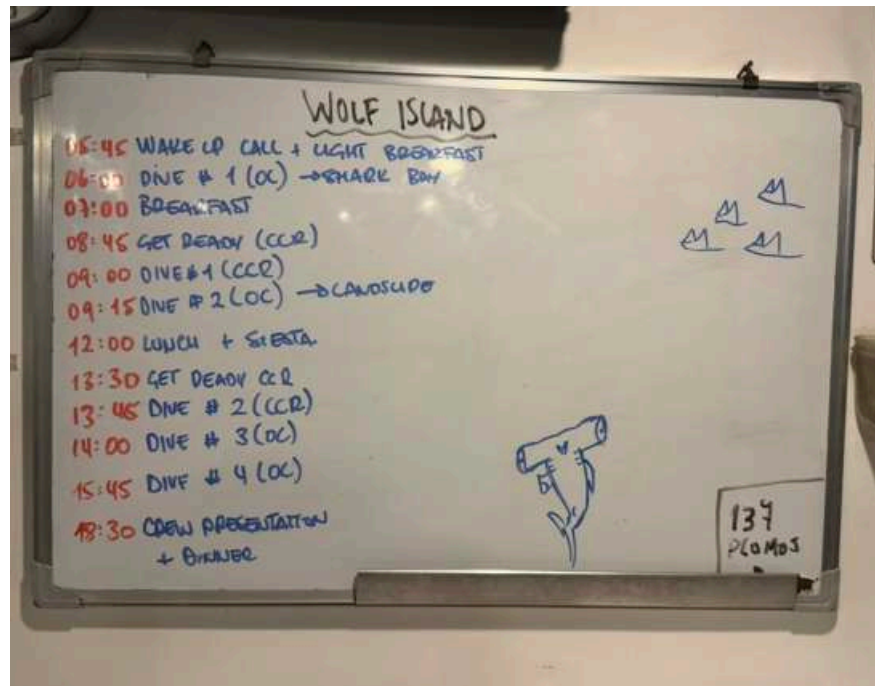 WOLF ISLAND
05:45 WAKE UP CALL + LIGHT BREAKFAST
06:00 DIVE # 1 (OC) → SHARK BAY
07:00 BREAKFAST
08:45 GET READY (CCR)
09:00 DIVE # 1 (CCR)
09:15 DIVE # 2 (OC) → LANDSLIDE
12:00 LUNCH + SIESTA
13:30 GET READY CCR
13:45 DIVE # 2 (CCR)
14:00 DIVE # 3 (OC)
15:45 DIVE # 4 (OC)
18:30 CREW PRESENTATION
+ DINNER
137
PLOMOS